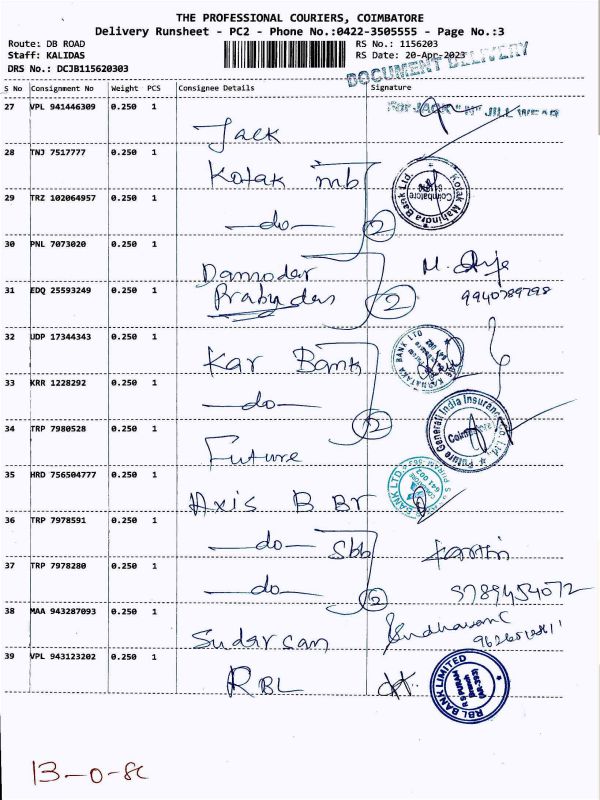 THE PROFESSIONAL COURIERS, COIMBATORE
Delivery Runsheet - PC2 - Phone No.:0422-3505555 - Page No.:3
Route: DB ROAD
Staff: KALIDAS
DRS No.: DCJB115620303
RS No.: 1156203
RS Date: 20-Apr-2023
DOCUMENT DELIVERY
S No Consignment No Weight PCS Consignee Details Signature
27 VPL 941446309 0.250 1
Jack
28 TNJ 7517777 0.250 1
Kotak mb
Kotak Mahindra Bank Ltd.
Coimbatore
29 TRZ 102064957 0.250 1
do
2
30 PNL 7073020 0.250 1
Damodar
31 EDQ 25593249 0.250 1
Prabu das
2
9940789798
32 UDP 17344343 0.250 1
Kar Bank
KARNATAKA BANK LTD
33 KRR 1228292 0.250 1
do
2
34 TRP 7980528 0.250 1
Future
Future Generali India Insurance Co. Ltd
35 HRD 756504777 0.250 1
Axis B Br
BANK LTD.
36 TRP 7978591 0.250 1
do Sbb
37 TRP 7978280 0.250 1
do
2
9789454072
38 MAA 943287093 0.250 1
Sudarsan
39 VPL 943123202 0.250 1
RBL
RBL BANK LIMITED
13-0-8C